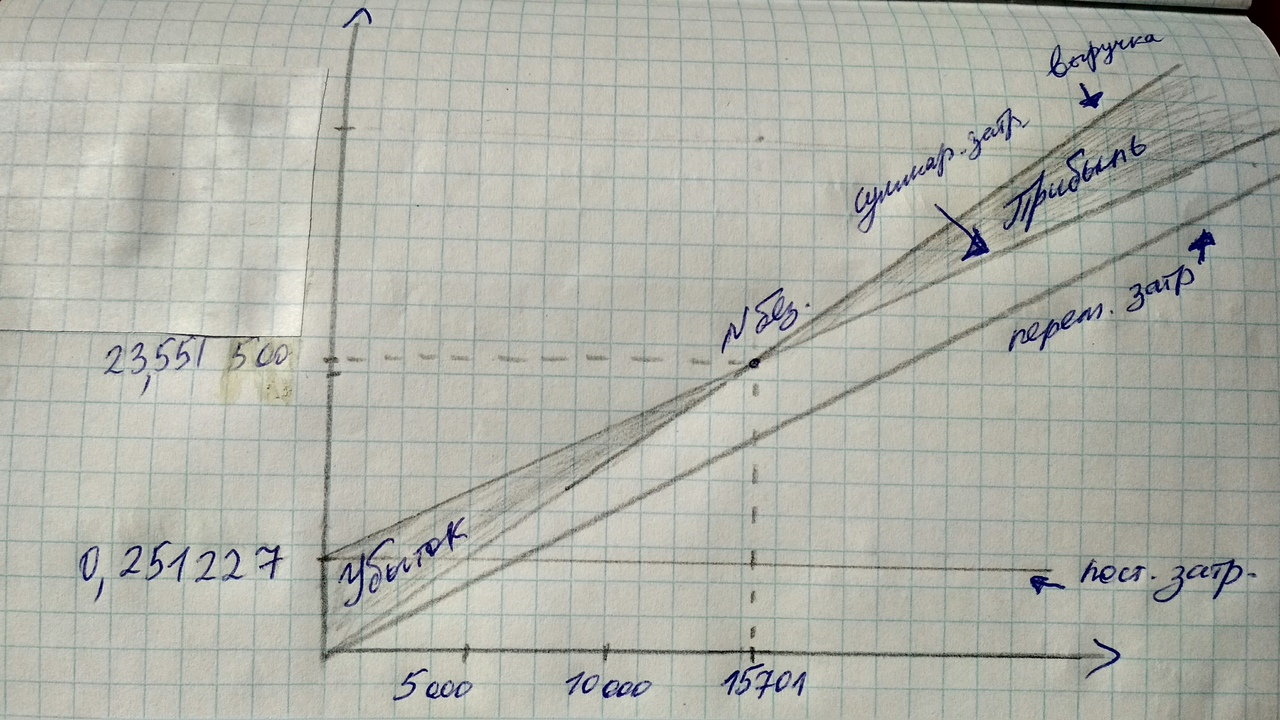 выручка
суммар. затр
Прибыль
N без.
перем. затр
23,551 500
Убыток
0,251227
пост. затр.
5000
10000
15701